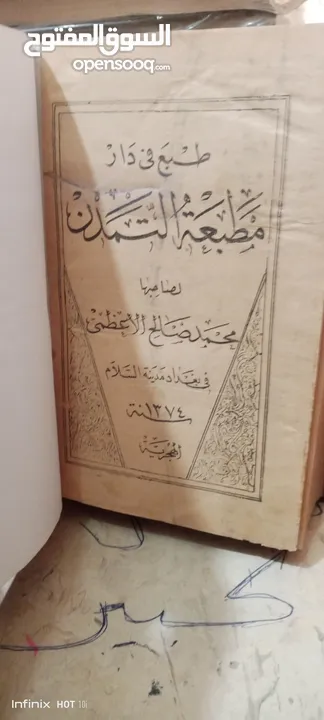 السوق المفتوح
opensooq.com
طبع في دار
مطبعة التمدن
لصاحبها
محمد صالح الأعظمي
في بغداد مدينة السلام
سنة ١٣٧٤
الهجرية
كبير
Infinix HOT 10i